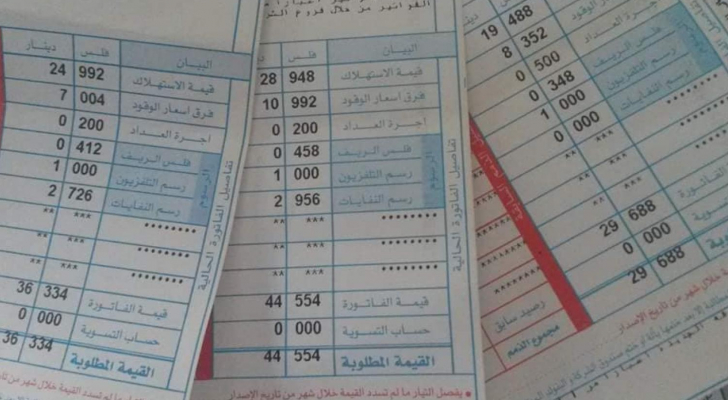 دينار فلس البيان
24 992 قيمة الاستهلاك
7 004 فرق اسعار الوقود
0 200 أجرة العداد
0 412 فلس الريف
1 000 رسم التلفزيون
2 726 رسم النفايات
الرسوم
** *** ********
** *** ********
** *** ********
36 334 قيمة الفاتورة
0 000 حساب التسوية
36 334 القيمة المطلوبة
تفاصيل الفاتورة الحالية
فلس البيان
28 948 قيمة الاستهلاك
10 992 فرق اسعار الوقود
0 200 أجرة العداد
0 458 فلس الريف
1 000 رسم التلفزيون
2 956 رسم النفايات
الرسوم
** *** ********
** *** ********
** *** ********
44 554 قيمة الفاتورة
0 000 حساب التسوية
44 554 القيمة المطلوبة
تفاصيل الفاتورة الحالية
• يفصل التيار ما لم تسدد القيمة خلال شهر من تاريخ الإصدار
19 488
8 352 الوقود
0 500 العداد
0 348 فلس الريف
1 000 رسم التلفزيون
0 000 رسم النفايات
29 688 الفاتورة
0 000
29 688
رصيد سابق
مجموع الذمم
خلال شهر من تاريخ الإصدار